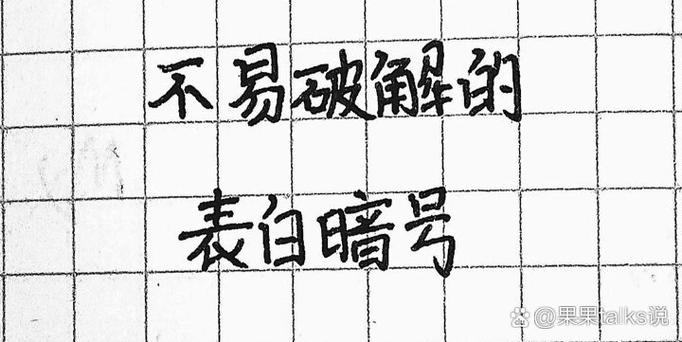 不易破解的
表白暗号
@果果talks说